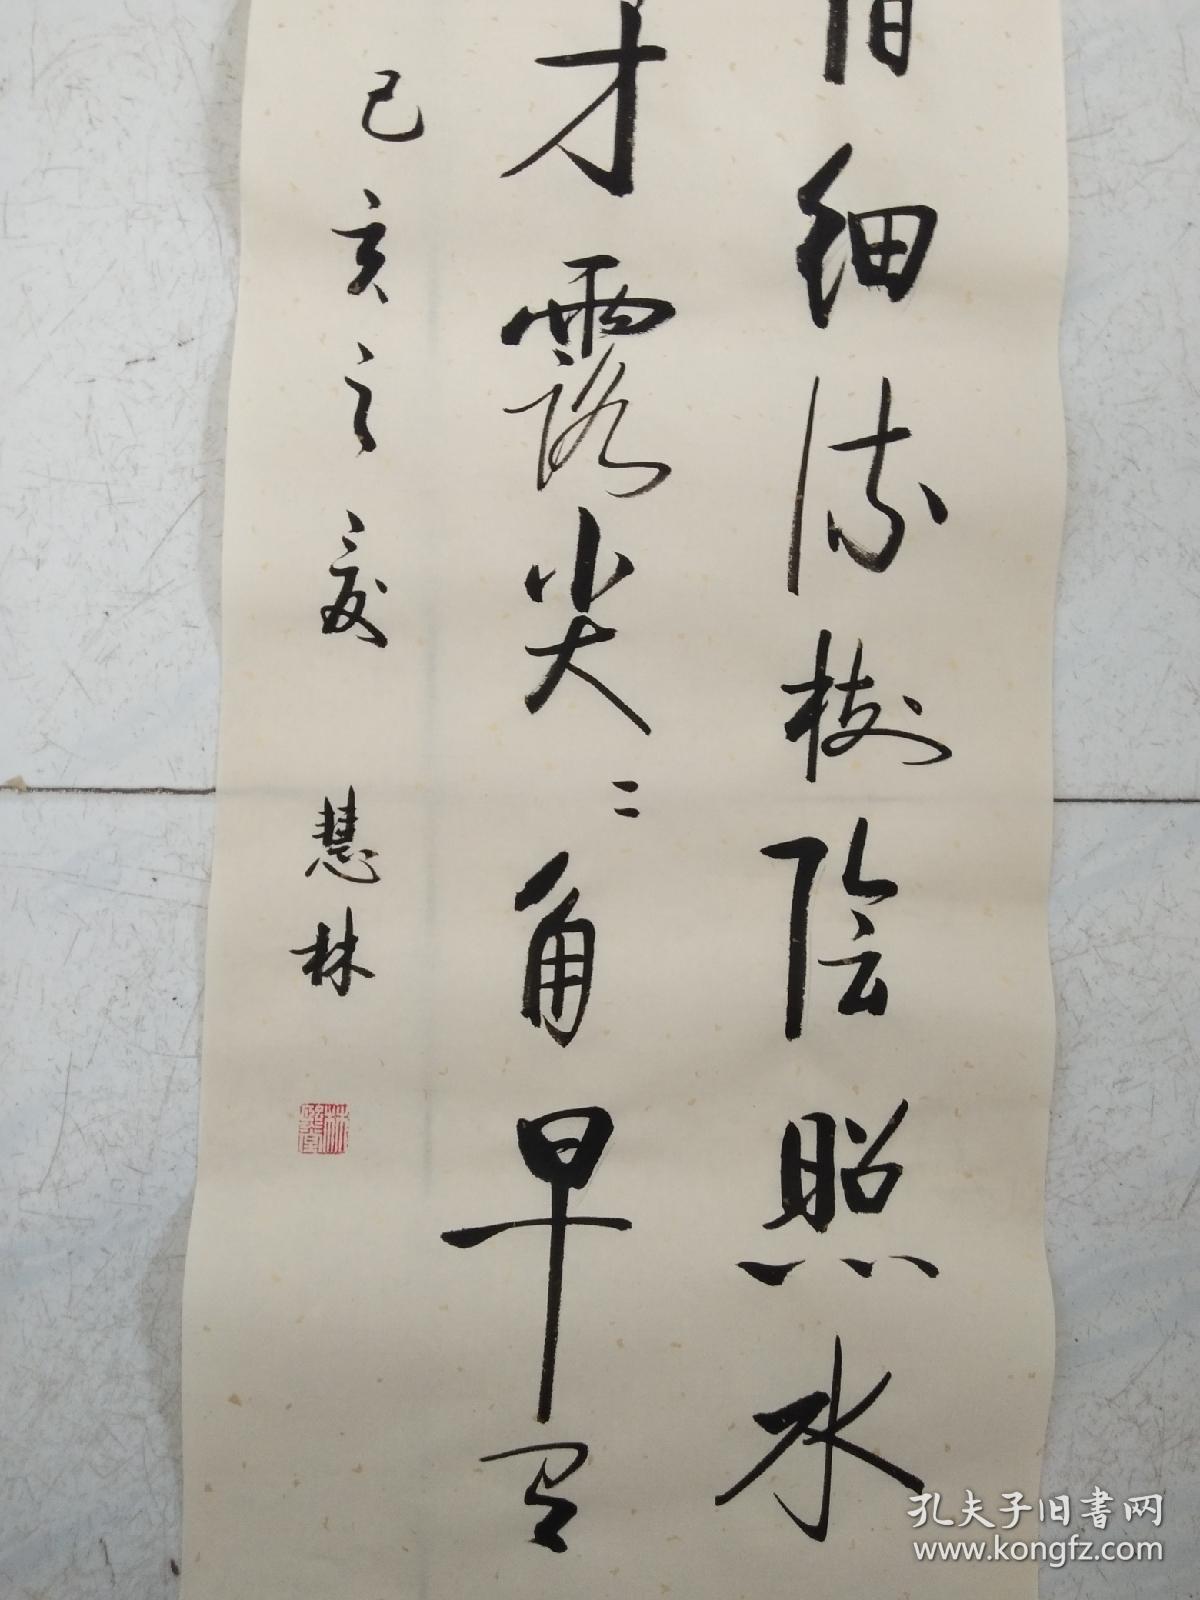 細流樹陰照水
才露尖々角早有
己亥之夏 慧林
孔夫子旧書网
www.kongfz.com